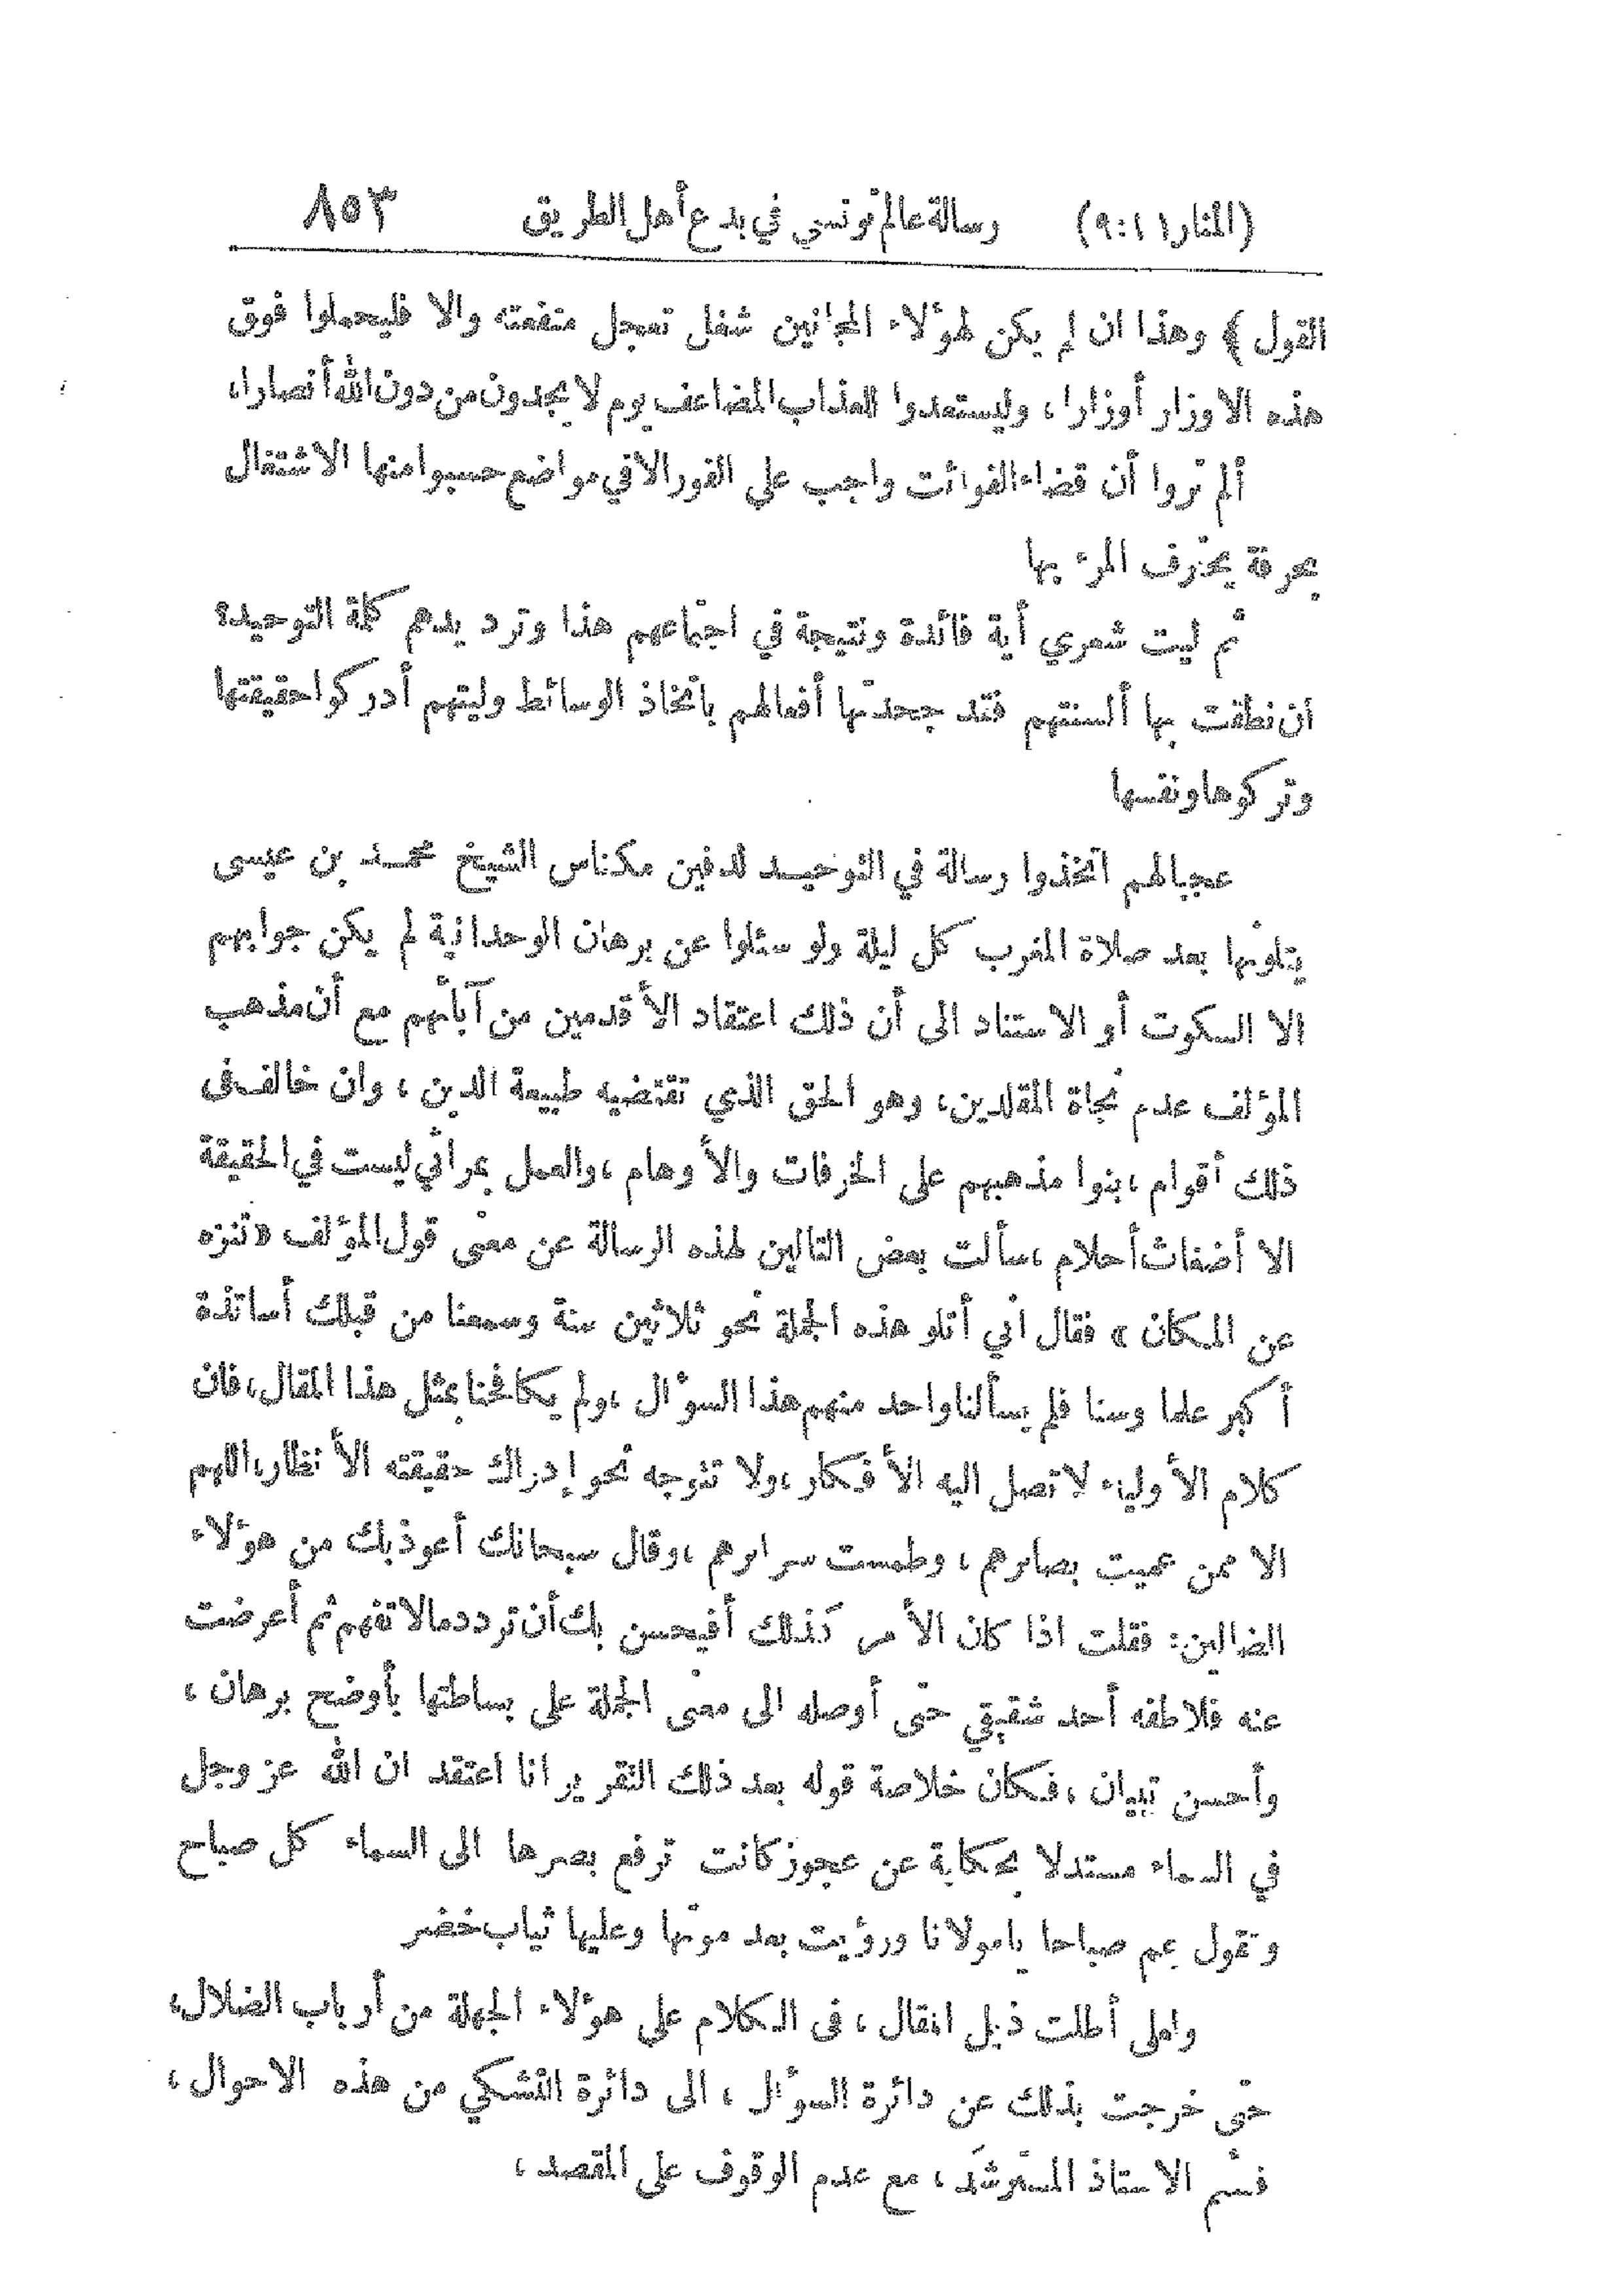 (المنار ٩:١١) رسالة عالم تونسي في بدع أهل الطريق ٨٥٣
القول ﴾ وهذا ان لم يكن لهؤلاء المجانين شغل تعجل منفعته والا فليحملوا فوق
هذه الاوزار أوزارا، وليستعدوا للعذاب المضاعف يوم لا يجدون من دون الله أنصارا،
ألم تروا أن قضاء الفوائت واجب على الفور الا في مواضع حسبوا منها الاشتغال
بحرفة يحترف المرء بها
ثم ليت شعري أية فائدة ونتيجة في اجتماعهم هذا وترديدهم كلمة التوحيد؟
ان نطقت بها ألسنتهم فقد جحدتها أفعالهم باتخاذ الوسائط وليتهم أدركوا حقيقتها
وتركوها ونفسها
عجبا لهم اتخذوا رسالة في التوحيد لدفين مكناس الشيخ محمد بن عيسى
يتلونها بعد صلاة المغرب كل ليلة ولو سئلوا عن برهان الوحدانية لم يكن جوابهم
الا السكوت أو الاستناد الى أن ذلك اعتقاد الأقدمين من آبائهم مع أن مذهب
المؤلف عدم نجاة المقلدين، وهو الحق الذي تقتضيه طبيعة الدين، وان خالف في
ذلك أقوام، بنوا مذهبهم على الخرفات والأوهام، والعمل بمرائي ليست في الحقيقة
الا أضغاث أحلام، سألت بعض التالين لهذه الرسالة عن معنى قول المؤلف «تنزه
عن المكان» فقال اني أتلو هذه الجملة نحو ثلاثين سنة وسمعنا من قبلك أساتذة
أكبر علما وسنا فلم يسألنا واحد منهم هذا السؤال، ولم يكافحنا بمثل هذا المقال، فان
كلام الأولياء لا تصل اليه الأفكار، ولا تتوجه نحو إدراك حقيقته الأنظار، اللهم
الا ممن عميت بصائرهم، وطمست سرائرهم، وقال سبحانك أعوذ بك من هؤلاء
الضالين: فقلت اذا كان الأمر كذلك أفيحسن بك أن تردد مالا تفهم ثم أعرضت
عنه فلاطفه أحد شقيقي حتى أوصله الى معنى الجملة على بساطتها بأوضح برهان،
وأحسن تبيان، فكان خلاصة قوله بعد ذلك التقرير انا اعتقد ان الله عز وجل
في السماء مستدلا بحكاية عن عجوز كانت ترفع بصرها الى السماء كل صباح
وتقول عم صباحا يامولانا ورؤيت بعد موتها وعليها ثياب خضر
ولعلي أطلت ذيل المقال، في الكلام على هؤلاء الجهلة من أرباب الضلال،
حتى خرجت بذلك عن دائرة السؤال، الى دائرة التشكي من هذه الاحوال،
فسئم الاستاذ المسترشد، مع عدم الوقوف على المقصد،